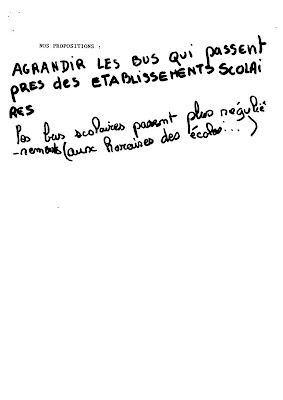 NOS PROPOSITIONS :
AGRANDIR LES BUS qui passent
pRES des ETABLISSEMENTS SCOLAI
RES
Les bus scolaires passent plus régulié
-rements (aux horaires des écoles...)